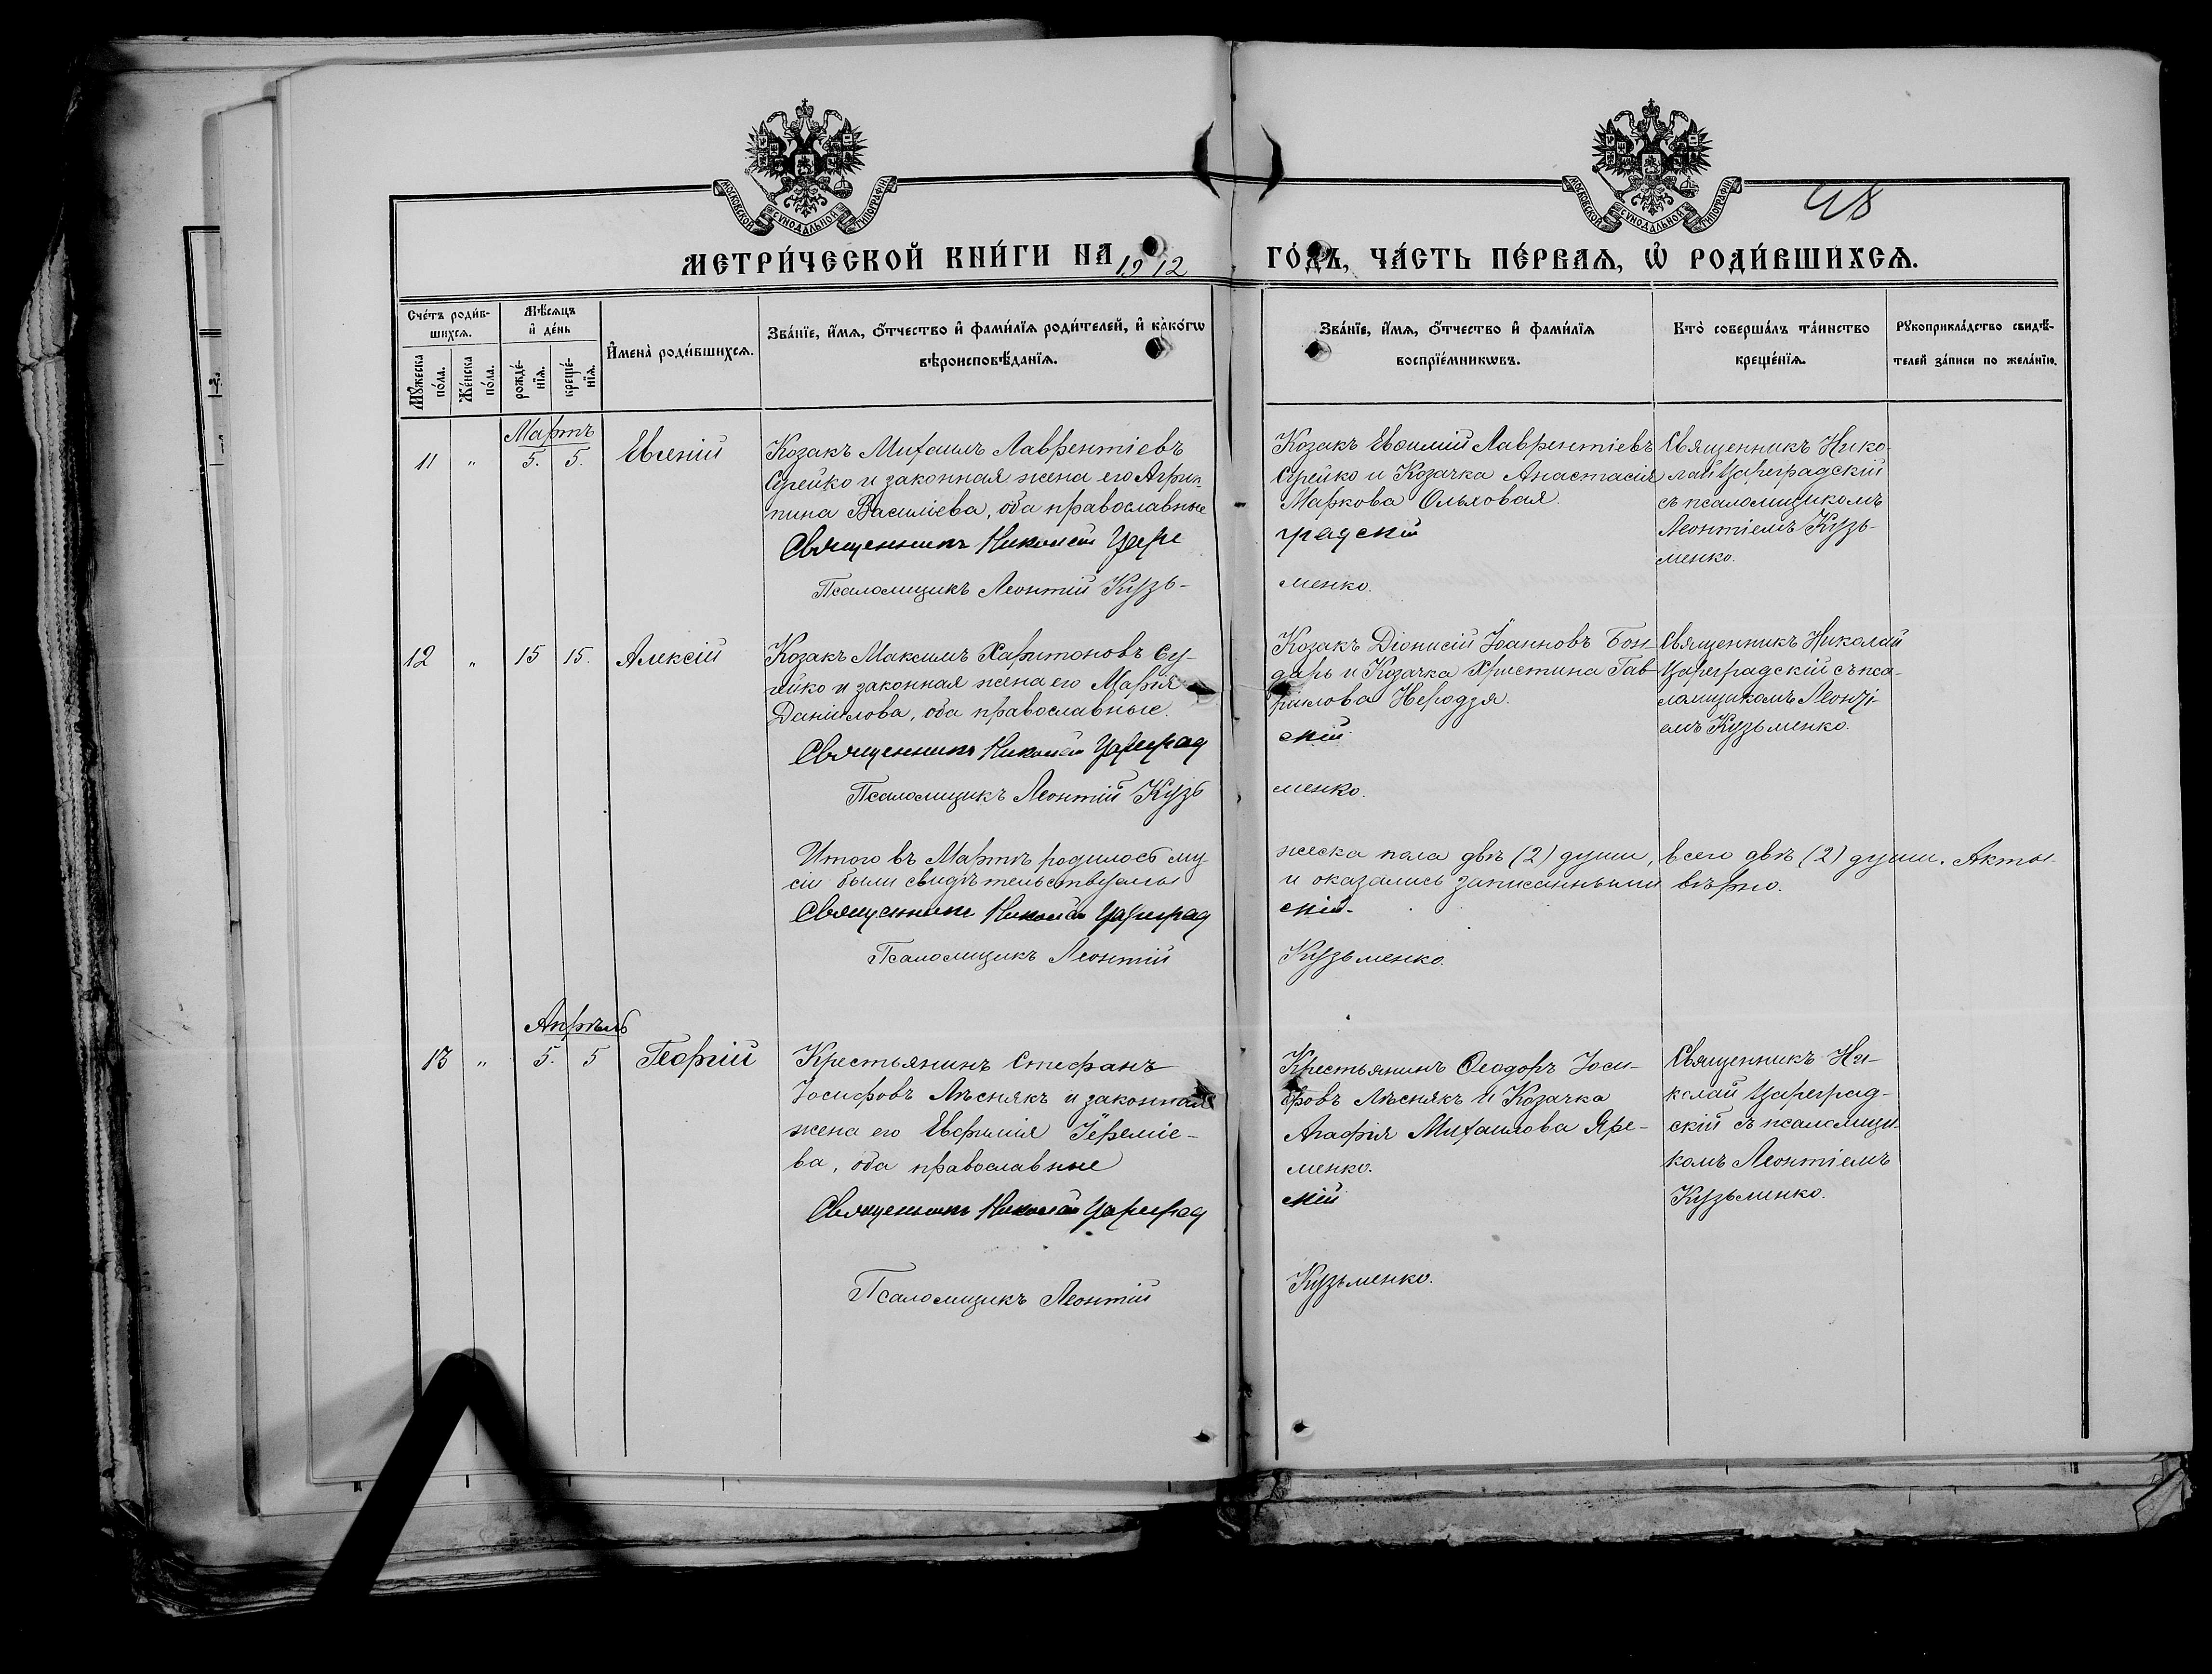 МОСКОВСКОЙ СУНОДАЛЬНОЙ ТИПОГРАФІИ
МОСКОВСКОЙ СУНОДАЛЬНОЙ ТИПОГРАФІИ
48
МЕТРИ́ЧЕСКОЙ КНИ́ГИ НА 1912 ГО́ДЪ, ЧА́СТЬ ПЕ́РВАѦ, Ѡ РОДИ́ВШИХСѦ.
Сче́тъ роди́в-
шихсѧ.
Мꙋ́жеска по́ла.
Же́нска по́ла.
Мѣ́сѧцъ
и де́нь
рожде́-
нїѧ.
креще́-
нїѧ.
И҆мена̀ роди́вшихсѧ.
Зва́нїе, и҆́мѧ, ѻ҆́тчество и҆ фами́лїѧ роди́телей, и҆ како́гѡ
вѣроисповѣ́данїѧ.
Зва́нїе, и҆́мѧ, ѻ҆́тчество и҆ фами́лїѧ
воспрїе́мникѡвъ.
Кто̀ соверша́лъ та́инство
креще́нїѧ.
Рꙋкоприкла́дство свидѣ́-
телей за́писи по жела́нїю.
Мартъ
11 " 5. 5. Евгеній
Козакъ Михаилъ Лаврентіевъ
и законная жена его Агрип-
пина Василіева, оба православные
Священникъ Николай Царе
Псаломщикъ Леонтій Кузь-
Козакъ Евѳимій Лаврентіевъ
и Козачка Анастасія
Маркова Ольховая.
градскій
менко.
Священникъ Нико-
лай Цареградскій
съ псаломщикомъ
Леонтіемъ Кузь-
менко.
12 " 15 15. Алексій
Козакъ Максимъ Харитоновъ
и законная жена его Марія
Даніилова, оба православные.
Священникъ Николай Цареград
Псаломщикъ Леонтій Кузь
Козакъ Діонисій Іоанновъ Бон-
дарь и Козачка Христина Гав-
ріилова Неродзя.
скій
менко.
Священникъ Николай
Цареградскій съ пса-
ломщикомъ Леонті-
емъ Кузьменко.
Итого въ Мартѣ родилось му- жеска пола двѣ (2) души, всего двѣ (2) души. Акты
сіи были свидѣтельствуемы и оказались записанными вѣрно.
Священникъ Николай Цареград скій.
Псаломщикъ Леонтій Кузьменко.
Апрѣль
13 " 5. 5 Георгій
Крестьянинъ Стефанъ
Іосифовъ Лѣснякъ и законная
жена его Евфимія Іереміе-
ва, оба православные
Священникъ Николай Цареград
Псаломщикъ Леонтій
Крестьянинъ Ѳеодоръ Іоси-
фовъ Лѣснякъ и Козачка
Агафія Михаилова Яре-
менко.
скій
Кузьменко.
Священникъ Ни-
колай Цареград-
скій съ псаломщи-
комъ Леонтіемъ
Кузьменко.